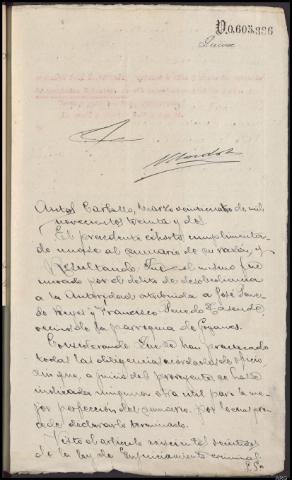 D.0.603,986
Auto = Carballo, Marzo veinticuatro de mil
novecientos treinta y dos.
El precedente exhorto cumplimenta-
do unase al sumario de su razón, y
Resultando: Que el mismo fue
incoado por el delito de desobediencia
a la Autoridad atribuida a José
y Francisco
vecinos de la parroquia de
Considerando: Que se han practicado
todas las diligencias acordadas de oficio
sin que, a juicio del proveyente, se halle
indicada ninguna otra util para la me-
jor perfección del sumario, por lo cual pro-
cede declararlo terminado.
Visto el articulo seiscientos veintidos
de la ley de Enjuiciamiento criminal
S.Sª